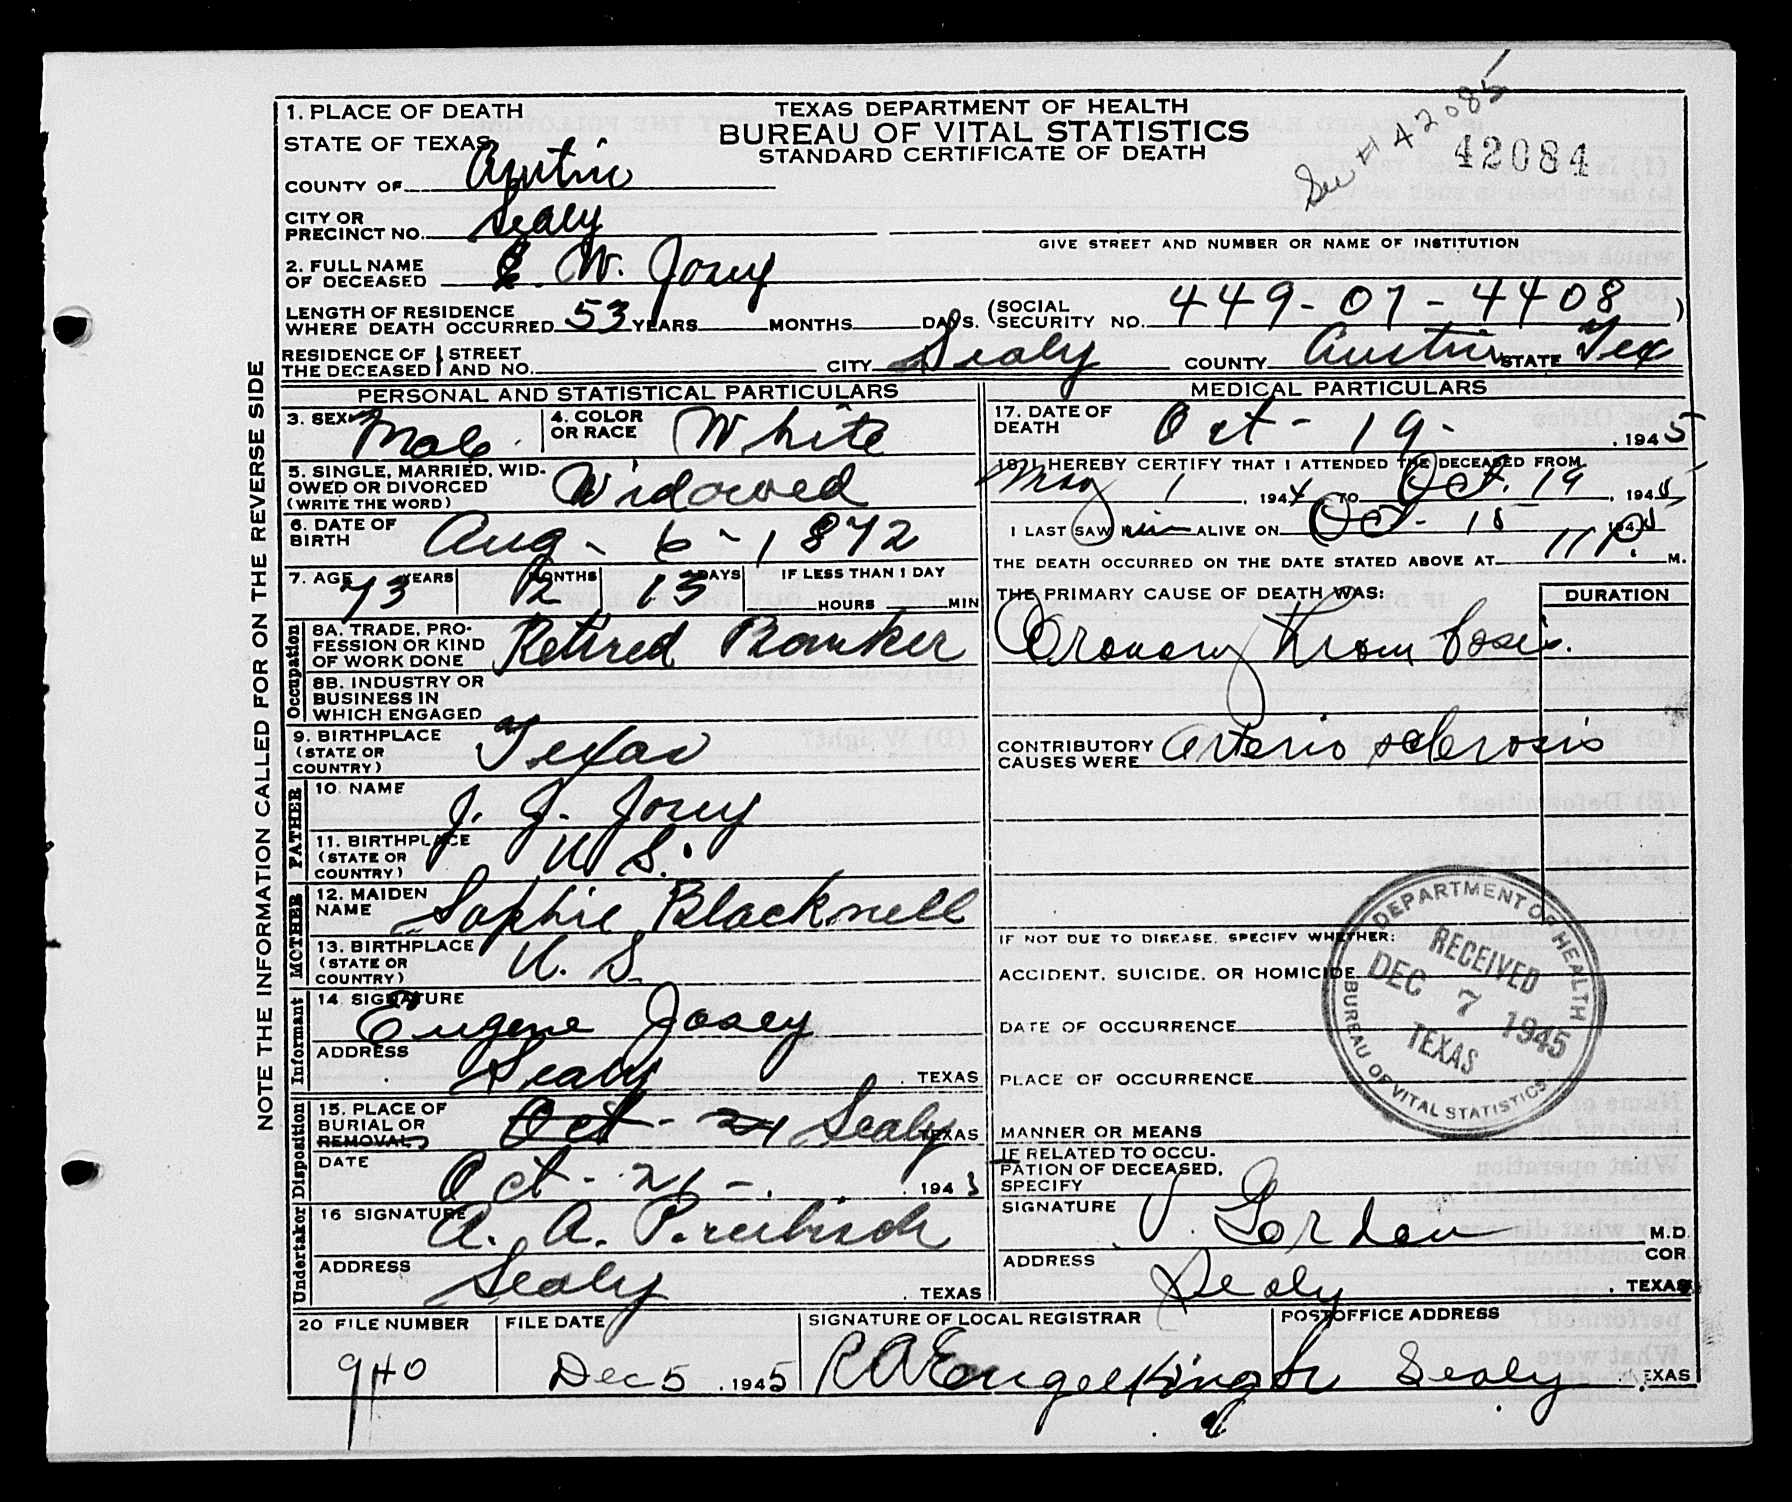 See # 42085
42084
TEXAS DEPARTMENT OF HEALTH
BUREAU OF VITAL STATISTICS
STANDARD CERTIFICATE OF DEATH
NOTE THE INFORMATION CALLED FOR ON THE REVERSE SIDE
1. PLACE OF DEATH
STATE OF TEXAS
COUNTY OF Austin
CITY OR PRECINCT NO. Sealy
GIVE STREET AND NUMBER OR NAME OF INSTITUTION
2. FULL NAME OF DECEASED E. W. Josey
LENGTH OF RESIDENCE WHERE DEATH OCCURRED 53 YEARS MONTHS DAYS. (SOCIAL SECURITY NO. 449-07-4408 )
RESIDENCE OF THE DECEASED STREET AND NO. CITY Sealy COUNTY Austin STATE Tex
PERSONAL AND STATISTICAL PARTICULARS
3. SEX Male 4. COLOR OR RACE White
5. SINGLE, MARRIED, WIDOWED OR DIVORCED (WRITE THE WORD) Widowed
6. DATE OF BIRTH Aug - 6 - 1872
7. AGE 73 YEARS 2 MONTHS 13 DAYS IF LESS THAN 1 DAY HOURS MIN
Occupation
8A. TRADE, PROFESSION OR KIND OF WORK DONE Retired Banker
8B. INDUSTRY OR BUSINESS IN WHICH ENGAGED
9. BIRTHPLACE (STATE OR COUNTRY) Texas
FATHER
10. NAME J. J. Josey
11. BIRTHPLACE (STATE OR COUNTRY) U. S.
MOTHER
12. MAIDEN NAME Sophie Blacknell
13. BIRTHPLACE (STATE OR COUNTRY) U. S.
Informant
14. SIGNATURE Eugene Josey
ADDRESS Sealy , TEXAS
Disposition
15. PLACE OF BURIAL OR REMOVAL Oct - 21 Sealy TEXAS
DATE Oct - 21 - , 1945
Undertaker
16 SIGNATURE A. A. Preibisch
ADDRESS Sealy , TEXAS
MEDICAL PARTICULARS
17. DATE OF DEATH Oct - 19 - , 1945
18. I HEREBY CERTIFY THAT I ATTENDED THE DECEASED FROM
May 1 , 194 TO Oct. 19 , 1945
I LAST SAW him ALIVE ON Oct. 15 1945
THE DEATH OCCURRED ON THE DATE STATED ABOVE AT 11 P. M.
THE PRIMARY CAUSE OF DEATH WAS: DURATION
Cronary Thrombosis.
CONTRIBUTORY CAUSES WERE Arterio sclerosis
IF NOT DUE TO DISEASE, SPECIFY WHETHER:
ACCIDENT, SUICIDE, OR HOMICIDE
DATE OF OCCURRENCE
PLACE OF OCCURRENCE
MANNER OR MEANS
IF RELATED TO OCCUPATION OF DECEASED, SPECIFY
SIGNATURE V. Gordon M.D. COR
ADDRESS Sealy , TEXAS
DEPARTMENT OF HEALTH
RECEIVED
DEC 7 1945
TEXAS
BUREAU OF VITAL STATISTICS
20 FILE NUMBER 940
FILE DATE Dec 5 , 1945
SIGNATURE OF LOCAL REGISTRAR R A Engelking Jr
POSTOFFICE ADDRESS Sealy , TEXAS